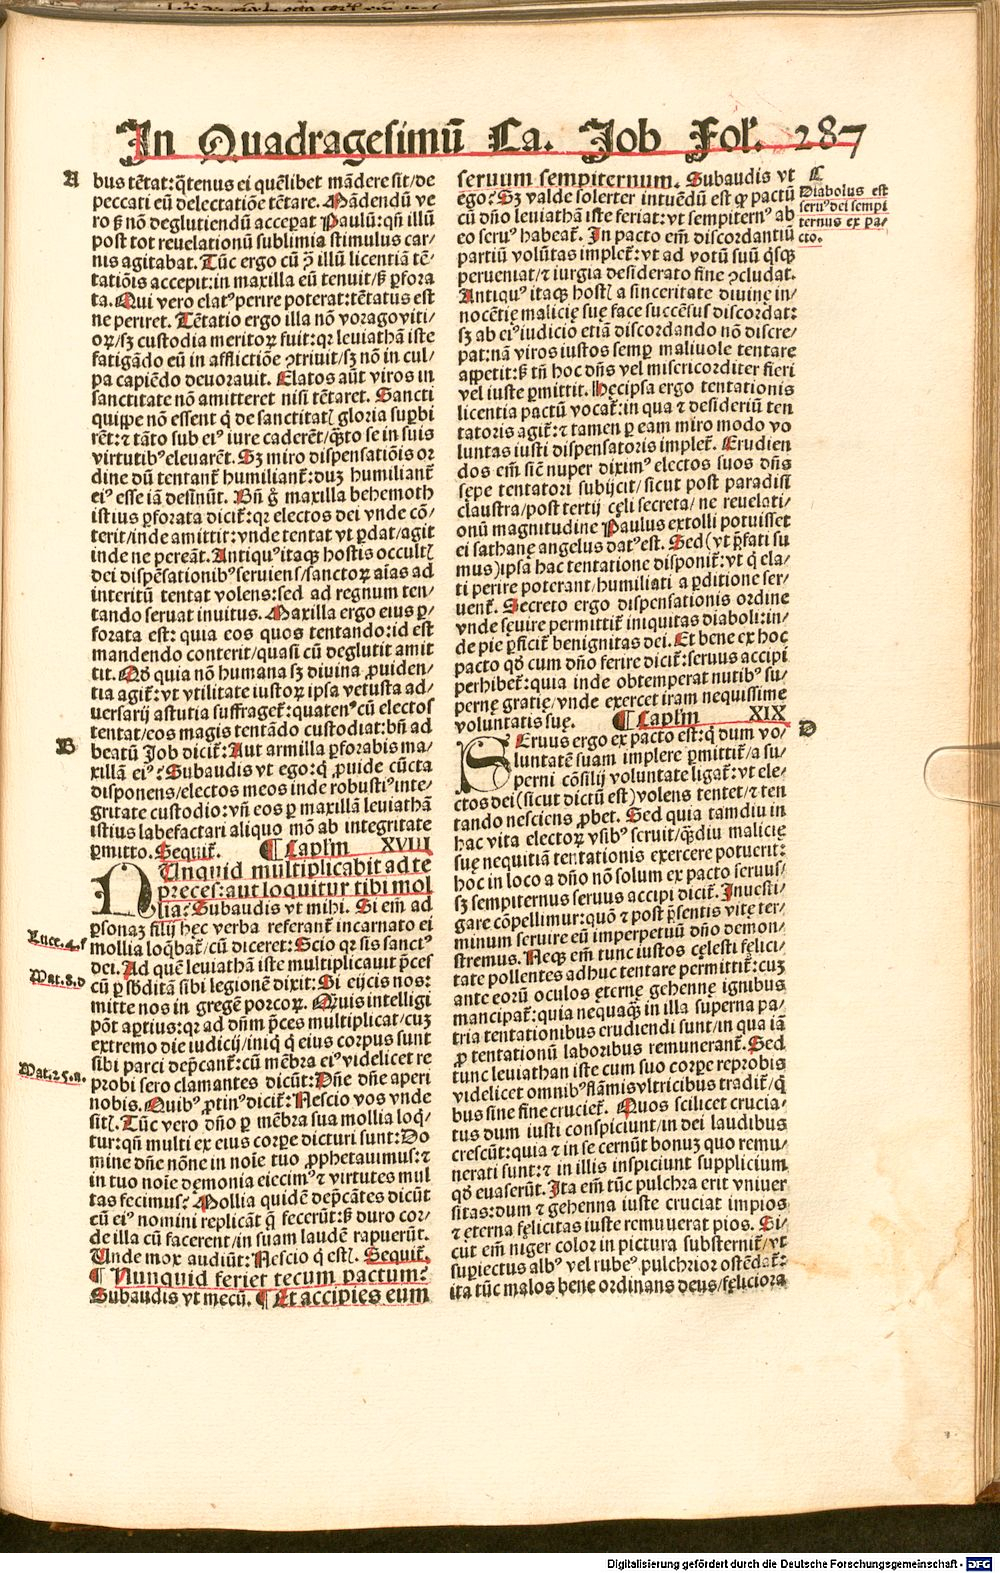 In Quadragesimū Ca. Job Fol'. 287
A
bus tētat: q̄tenus ei quēlibet mādere sit/de
peccati eū delectatiōe tētare. Mādendū ve
ro ꝫ nō deglutiendū acceꝑat Paulū: qn̄ illū
post tot reuelationū sublimia stimulus car/
nis agitabat. Tūc ergo cū ꝯ̄ illū licentiā tē/
tatiōis accepit: in maxilla eū tenuit/ꝫ ꝑfora
ta. Qui vero elatꝰ perire poterat: tētatus est
ne periret. Tētatio ergo illa nō vorago viti/
oꝝ/sꝫ custodia meritoꝝ fuit: qꝛ leuiathā iste
fatigādo eū in afflictiōe ꝯtriuit/sꝫ nō in cul/
pa capiēdo deuorauit. Elatos aūt viros in
sanctitate nō amitteret nisi tētaret. Sancti
quippe nō essent q̇ de sanctitatꝭ gloria suꝑbi
rēt: ⁊ tāto sub eiꝰ iure caderēt/q̄to se in suis
virtutibꝰ eleuarēt. Sꝫ miro dispensatiōis or
dine dū tentant̄ humiliant̄: dū humiliant̄
eiꝰ esse iā desinūt. Bn̄ ḡ maxilla behemoth
istius ꝑforata dicit̄: qꝛ electos dei vnde cō/
terit/inde amittit: vnde tentat vt ꝑdat/agit
inde ne pereāt. Antiquꝰ itaqꝫ hostis occultꝭ
dei dispēsationibꝰ seruiens/sanctoꝝ aīas ad
interitū tentat volens: sed ad regnum ten/
tando seruat inuitus. Maxilla ergo eius ꝑ/
forata est: quia eos quos tentando: id est
mandendo conterit/quasi cū deglutit amit
tit. Qḋ quia nō humana sꝫ diuina ꝓuiden/
tia agit̄: vt vtilitate iustoꝝ ipsa vetusta ad/
uersarij astutia suffraget̄: quatenꝰ cū electos
tentat/eos magis tentādo custodiat: bn̄ ad
B
beatū Job dicit̄: Aut armilla ꝑforabis ma/
xillā eiꝰ? Subaudis vt ego: q̇ ꝓuide cūcta
disponens/electos meos inde robustiꝰ inte/
gritate custodio: vn̄ eos ꝑ maxillā leuiathā
istius labefactari aliquo mō ab integritate
ꝑmitto. Sequit̄. ¶ Caplm̄ XVIII
NUnquid multiplicabit ad te
preces: aut loquitur tibi mol
lia? Subaudis vt mihi. Si em̄ ad
ꝑsonaꝫ filij hęc verba referant̄ incarnato ei
Luce.4.f
mollia loq̄bat̄/cū diceret: Scio qꝛ sis sanctꝰ
dei. Ad quē leuiathā iste multiplicauit p̄ces
Mat.8.d
cū ꝑ sb̄ditā sibi legionē dixit: Si eijcis nos:
mitte nos in gregē porcoꝝ. Quis intelligi
pōt aꝑtius: qꝛ ad dn̄m p̄ces multiplicat/cuꝫ
extremo die iudicij/iniq̇ q̇ eius corpus sunt
sibi parci dep̄cant̄: cū mēbra eiꝰ videlicet re
Mat.25.a.
probi sero clamantes dicūt: Dn̄e dn̄e aperi
nobis. Quibꝰ ꝓtinꝰ dicit̄: Nescio vos vnde
sitꝭ. Tūc vero dn̄o ꝑ mēbra sua mollia loq̄/
tur: qn̄ multi ex eius corꝑe dicturi sunt: Do
mine dn̄e nōne in noīe tuo ꝓphetauimus: ⁊
in tuo noīe demonia eiecimꝰ ⁊ virtutes mul
tas fecimus? Mollia quidē dep̄cātes dicūt
cū eiꝰ nomini replicāt q̄ fecerūt: ꝫ duro cor/
de illa cū facerent/in suam laudē rapuerūt.
Unde mox audiūt: Nescio q̇ estꝭ. Sequit̄.
¶ Nunquid feriet tecum pactum?
Subaudis vt mecū. ¶ Et accipies eum
seruum sempiternum. Subaudis vt
C
Diabolus est
seruꝰ dei sempi
ternus ex pa/
cto.
ego? Sꝫ valde solerter intuēdū est ꝙ pactū
cū dn̄o leuiathā iste feriat: vt sempiternꝰ ab
eo seruꝰ habeat̄. In pacto em̄ discordantiū
partiū volūtas implet̄: vt ad votū suū q̇sqꝫ
perueniat/⁊ iurgia desiderato fine ꝯcludat.
Antiquꝰ itaqꝫ hostꝭ a sinceritate diuinę in/
nocētię malicię suę face succēsus discordat:
sꝫ ab eiꝰ iudicio etiā discordando nō discre/
pat: nā viros iustos semꝑ maliuole tentare
appetit: ꝫ tn̄ hoc dn̄s vel misericorditer fieri
vel iuste ꝑmittit. Hęc ipsa ergo tentationis
licentia pactū vocat̄: in qua ⁊ desideriū ten
tatoris agit̄: ⁊ tamen ꝑ eam miro modo vo
luntas iusti dispensatoris implet̄. Erudien
dos em̄ sicū nuper diximꝰ electos suos dn̄s
sępe tentatori subijcit/sicut post paradisi
claustra/post tertij cęli secreta/ne reuelati/
onū magnitudine Paulus extolli potuisset
ei sathanę angelus datꝰ est. Sed (vt p̄fati su
mus) ipsa hac tentatione disponit̄: vt q̇ ela/
ti perire poterant/humiliati a ꝑditione ser/
uent̄. Secreto ergo dispensationis ordine
vnde sęuire permittit̄ iniquitas diaboli: in/
de pie ꝑficit̄ benignitas dei. Et bene ex hoc
pacto qḋ cum dn̄o ferire dicit̄: seruus accipi
perhibet̄: quia inde obtemperat nutibꝰ su/
pernę gratię/vnde exercet iram nequissime
voluntatis suę. ¶ Caplm̄ XIX
D
SEruus ergo ex pacto est: q̇ dum vo/
luntatē suam implere ꝑmittit̄/a su/
perni cōsilij voluntate ligat̄: vt ele/
ctos dei (sicut dictū est) volens tentet/⁊ ten
tando nesciens ꝓbet. Sed quia tamdiu in
hac vita electoꝝ vsibꝰ seruit/q̄diu malicię
suę nequitiā tentationis exercere potuerit:
hoc in loco a dn̄o nō solum ex pacto seruus/
sꝫ sempiternus seruus accipi dicit̄. Inuesti/
gare cōpellimur: quō ⁊ post p̄sentis vitę ter/
minum seruire eū imperpetuū dn̄o demon/
stremus. Neqꝫ em̄ tunc iustos cęlesti fęlici/
tate pollentes adhuc tentare permittit̄: cuꝫ
ante eorū oculos ęternę gehennę ignibus
mancipat̄: quia nequaq̄ in illa superna pa/
tria tentationibus erudiendi sunt/in qua iā
ꝓ tentationū laboribus remunerant̄. Sed
tunc leuiathan iste cum suo corꝑe reprobis
videlicet omnibꝰ flāmis vltricibus tradit̄/q̇
bus sine fine crucięt̄. Quos scilicet crucia/
tus dum iusti conspiciunt/in dei laudibus
crescūt: quia ⁊ in se cernūt bonuꝫ quo remu/
nerati sunt: ⁊ in illis inspiciunt supplicium
qḋ euaserūt. Ita em̄ tūc pulchra erit vniuer
sitas: dum ⁊ gehenna iuste cruciat impios
⁊ ęterna fęlicitas iuste remuuerat pios. Si/
cut em̄ niger color in pictura substernit̄/vt
suꝑiectus albꝰ vel rubeꝰ pulchrior ostēdat̄:
ita tūc malos bene ordinans deus/fęliciora
Digitalisierung gefördert durch die Deutsche Forschungsgemeinschaft - DFG